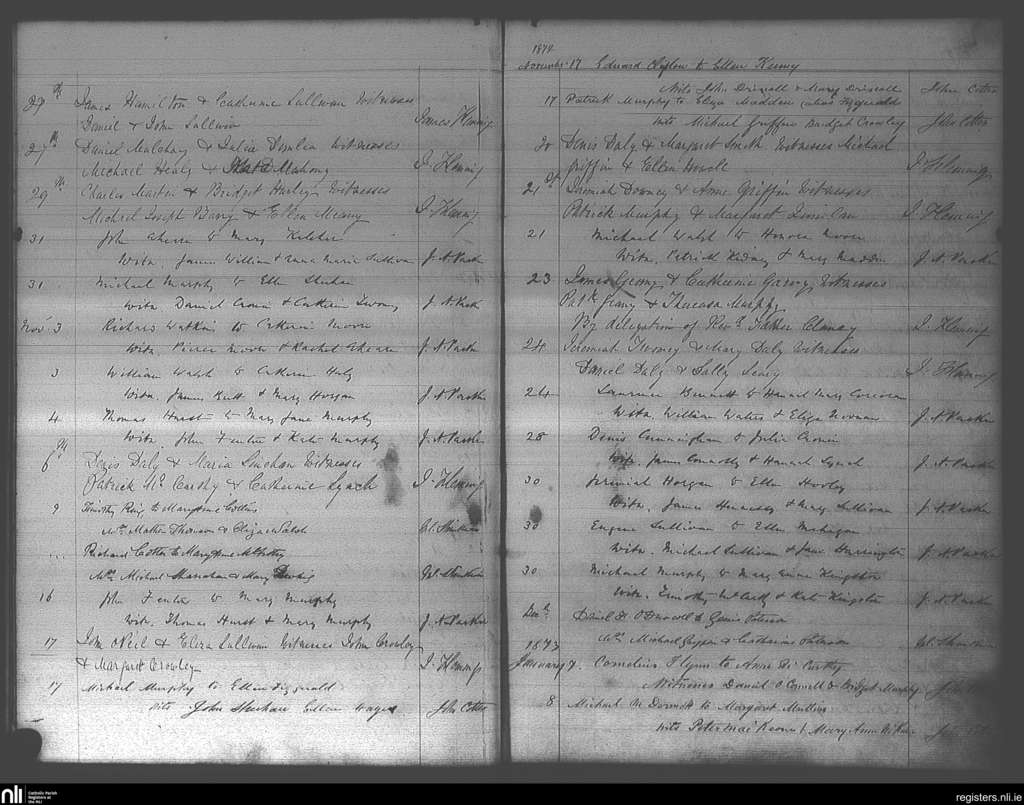 27th James Hamilton & Catherine Sullivan Witnesses
Daniel & John Sullivan James Fleming
27th Daniel Malchay & Julia Witnesses
Michael Healy & Mahony J. Fleming
29th Charles Martin & Bridget Hurley Witnesses
Michael Joseph Barry & Ellen Meany J. Fleming
31 John Aherne to Mary Kelcher
Witn. James William & Anna Maria Sullivan J. A. Parker
31 Michael Murphy to Ellen Sheehan
Witn. Daniel Cronin & Catherine Twomey J. A. Parker
Nov 3 Richard Watkins to Catherine Moore
Witn. Pierce Moore & Rachel Aherne J. A. Parker
3 William Walsh to Catherine Healy
Witn. James Butt & Mary Horgan J. A. Parker
4 Thomas Hurst to Mary Jane Murphy
Witn. John Fenton & Kate Murphy J. A. Parker
6th Denis Daly & Maria Linehan Witnesses
Patrick Mc Carthy & Catherine Lynch J. Fleming
9 Timothy Ring to Maryanne Collins
Wn. Mathew & Eliza Walsh
... Richard Cotter to Maryanne McCarthy
Wn. Michael Shanahan & Mary
16 John Fenton to Mary Murphy
Witn. Thomas Hurst & Mary Murphy J. A. Parker
17 John O'Neil & Eliza Sullivan Witnesses John Crowley
& Margaret Crowley J. Fleming
17 Michael Murphy to Ellen Fitzgerald
Wits John Sheehan Ellen Hayes John Cotter
1872
November 17 Edward Clifton to Ellen Kenny
Wits John Driscoll & Mary Driscoll John Cotter
17 Patrick Murphy to Eliza Madden (alias Fitzgerald)
Wits Michael Griffin Bridget Crowley John Cotter
20 Denis Daly & Margaret Smith Witnesses Michael
Griffin & Ellen J. Fleming
21st Jeremiah Downey & Anne Griffin Witnesses
Patrick Murphy & Margaret J. Fleming
21 Michael Walsh to Honora Moore
Witn. Patrick Kidney & Mary Madden J. A. Parker
23 James Geany & Catherine Garvey Witnesses
Patk Geany & Theresa Murphy
By delegation of Revd. Father Clancy J. Fleming
24 Jeremiah Twomey & Mary Daly Witnesses
Daniel Daly & Sally Leary J. Fleming
24 Laurence Bennett to Hannah Mary Corcoran
Witn. William Walter & Eliza Noonan J. A. Parker
28 Denis Cunningham to Julia Cronin
Witn. James Connolly & Hannah Lynch J. A. Parker
30 Jeremiah Horgan to Ellen Hurley
Witn. James Hennessy & Mary Sullivan J. A. Parker
30 Eugene Sullivan to Ellen Mehigan
Witn. Michael Sullivan & Jane Harrington J. A. Parker
30 Michael Murphy to Mary Anne Kingston
Witn. Timothy McCarthy & Kate Kingston J. A. Parker
Decr. Daniel F. O'Driscoll to
Wn. Michael Griffin & Catherine
1873
January 7. Cornelius Flynn to Anne Mc Carthy
Witnesses Daniel O'Connell & Bridget Murphy
8 Michael McDermott to Margaret Mullins
Wits Peter MacKeown & Mary Anne
nli Catholic Parish Registers at the NLI
registers.nli.ie